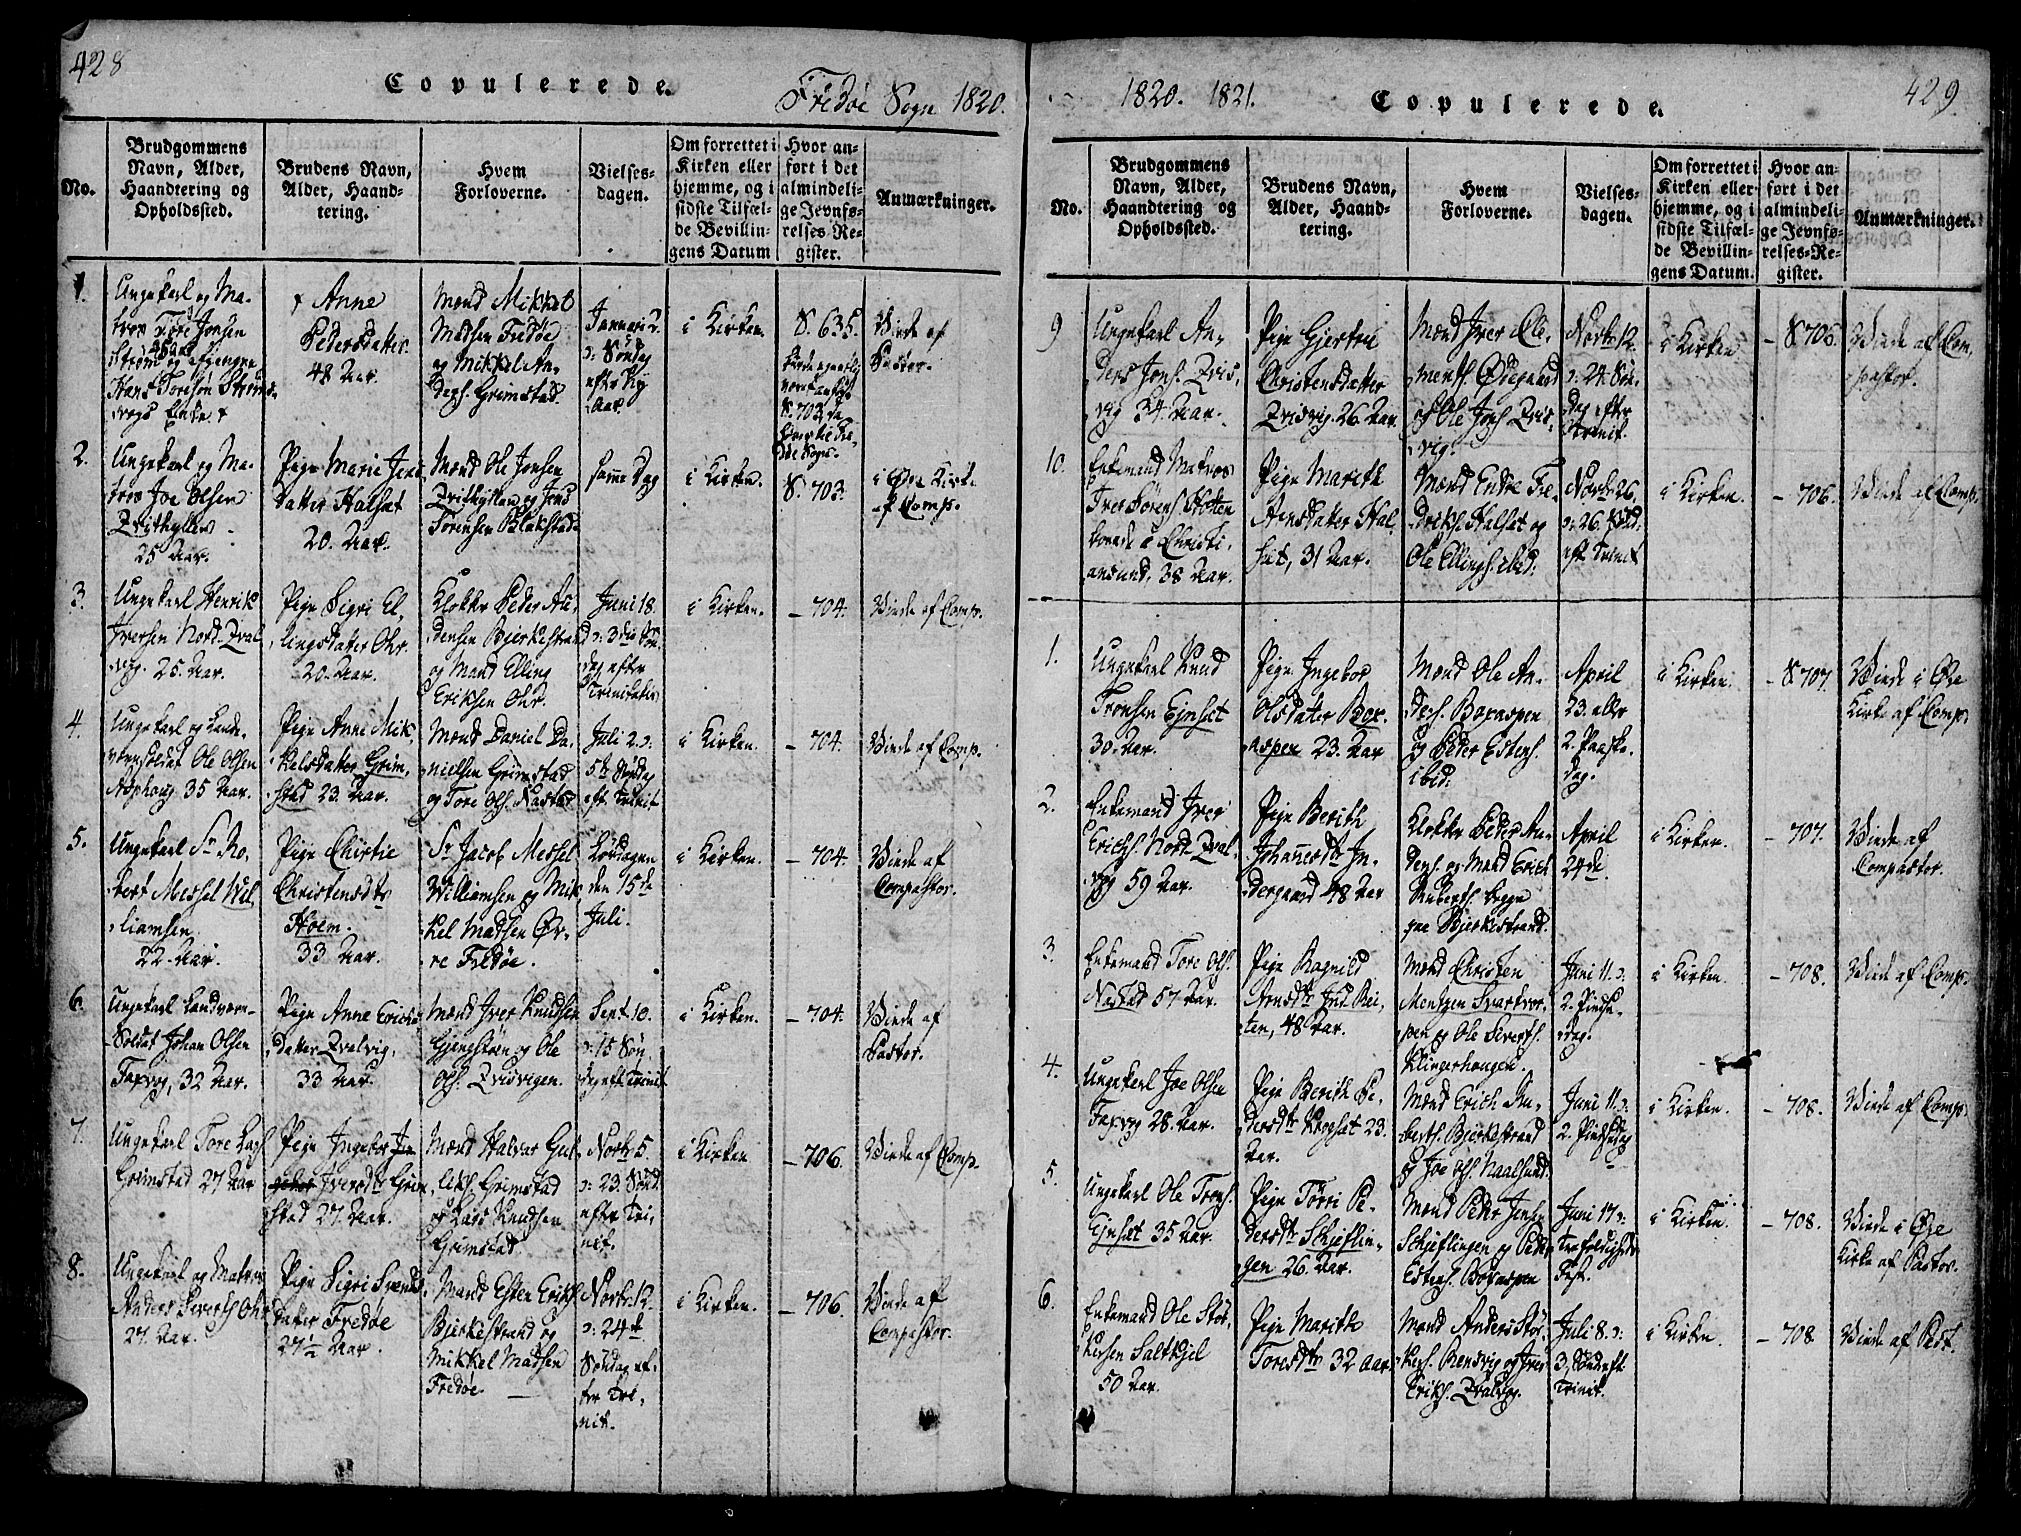 428
Copulerede.
Fredøe Sogn 1820.
No.
Brudgommens
Navn, Alder,
Haandtering og
Opholdssted.
Brudens Navn,
Alder, Haand-
tering.
Hvem
Forloverne.
Vielses-
dagen.
Om forrettet i
Kirken eller
hjemme, og i
sidste Tilfæl-
de Bevillin-
gens Datum
Hvor an-
ført i det
almindeli-
ge Jevnfø-
relses-Re-
gister.
Anmærkninger.
1.
Ungekarl og Ma-
tros Tore Jonsen
Hans Toresøn Strøms-
vogs Enke
Anne
Pedersdatter
48 Aar.
Mænd Mikkel
Madsen Fredøe
og Mikkel An-
ders. Grimstad.
Januari 2.
ɔ: Søndag
efter Ny
Aar.
i Kirken.
S. 635.
S. 703
Viede af
Pastor.
2.
Ungekarl og Ma-
tros Joe Olsen
25 Aar.
Pige Marie Jens
datter Halsat
20. Aar.
Mænd Ole Jonsen
og Jens
Toresen Blakstad
samme Dag
i Kirken.
S. 703.
i Øre Kirke
af Comp.
3.
Ungekarl Henrik
Iversen Nord-Qval-
vog. 25. Aar.
Pige Sigri El-
lingsdatter Ohr.
20. Aar.
Klokker Peder An-
dersen Bjerkestrand
og Mand Elling
Eriksen Ohr.
Juni 18.
ɔ: 3die Søn-
dag efter
Trinitatis
i Kirken.
- 704.
Viede af Comp.
4.
Ungekarl og Lande-
værnsoldat Ole Olsen
Aaphaug 35 Aar.
Pige Anne Mik-
kelsdatter Grim-
stad 23. Aar.
Mænd Daniel Da-
nielsen Grimstad
og Tore Ols. Nastad
Juli 2. ɔ:
5te Søndag
eft. Trinit
i Kirken.
- 704.
Viede af Comp.
5.
Ungekarl Sr. Ro-
bert Messel Wil-
liamsen.
22 Aar.
Pige Christie
Christensdtr
Hoem.
33 Aar.
Sr Jacob Messel
Williamsen og Mik-
kel Madsen Øv-
re Fredøe.
Lørdagen
den 15de
Juli.
i Kirken.
- 704.
Viede af
Compastor.
6.
Ungekarl Landværn-
Soldat Johan Olsen
Faxvog, 32 Aar.
Pige Anne Erichs
datter Qvalvig,
33 Aar.
Mænd Iver Knudsen
Gjengstøen og Ole
Ols. Qvisvigen.
Sept. 10.
ɔ: 15 Søn-
dag eft Trinit
i Kirken.
- 704.
Viede af
Pastor.
7.
Ungekarl Tore Lars.
Grimstad 27 Aar
Pige Ingebor In-
Iversdtr Grim
stad 27. Aar.
Mænd Halvar Gul-
liks. Grimstad
og Lars Knudsen
Grimstad.
Novbr 5.
ɔ: 23. Sønd.
efter Tri-
nit.
i Kirken
- 706.
Viede af Comp.
8.
Ungekarl og Matros
Anders Siverts. Ohr
27. Aar.
Pige Sigri Svends
datter Fredøe
27½ Aar.
Mænd Esten Eriks.
Bjerkestrand og
Mikkel Madsen
Fredøe.
Novbr: 12.
ɔ: 24de
Søndag ef-
ter Tri-
nit.
i Kirken.
- 706.
Viede af
Compastor.
1820. 1821.
Copulerede.
429.
No.
Brudgommens
Navn, Alder,
Haandtering og
Opholdssted.
Brudens Navn,
Alder, Haand-
tering.
Hvem
Forloverne.
Vielses-
dagen.
Om forrettet i
Kirken eller
hjemme, og i
sidste Tilfæl-
de Bevillin-
gens Datum.
Hvor an-
ført i det
almindeli-
ge Jevnfø-
relses-Re-
gister.
Anmærkninger.
9
Ungekarl An-
ders Jons. Qvis-
vig 34. Aar.
Pige Gjertru
Christensdatter
Qvisvig. 26. Aar.
Mænd Iver Cle-
ments. Ødegaard
og Ole Jons. Qvis-
vig.
Novbr. 12.
ɔ: 24. Søn-
dag efter
Trinit.
i Kirken
- S 706.
Viede af Com-
pastor.
10.
Enkemand Matros
Iver Sørens.
i Christi-
ansund, 38 Aar.
Pige Marith
Arnsdatter Hal-
sat, 31 Aar.
Mænd Endre Fre-
driks. Halsat og
Ole Ellings. ibid:
Novbr. 26.
ɔ: 26. Sønd:
eft Trinit
i Kirken.
- 706.
Viede af Comp.
1.
Ungekarl Knud
Tronsen Ejnset
30. Aar.
Pige Ingebor
Olsdatter Box-
aspen 23. Aar
Mænd Ole An-
ders. Boxaspen
og Peder Estens.
ibid.
April
23. eller
2. Paaske-
dag.
i Kirken.
- S 707.
Viede i Øre
Kirke af Comp.
2.
Enkemand Iver
Erichs. Nord-Qval-
vog 59 Aar.
Pige Berith
Johannesdtr In-
dergaard 48 Aar
Klokker Peder An-
ders. og Mand Erich
Ruberts. begge
paa Bjerkestrand.
April
24de
i Kirken.
- 707.
Viede af
Compastor.
3.
Enkemand Tore Ols.
Nastad 57 Aar.
Pige Ragnild
Arnsdtr Ind. Rei-
ten, 48 Aar.
Mænd Christen
Mentzen Svartvas-
pen og Ole Siverts.
Klingerhaugen.
Juni 11. ɔ:
2. Pindse-
dag.
i Kirken.
- 708.
Viede af Comp.
4.
Ungekarl Joe Olsen
Faxvog 28. Aar.
Pige Berith Pe-
dersdtr Korsat 23.
Aar.
Mænd Erich Ru-
berts. Bjerkestrand
og Joe Ols. Naalsund.
Juni 11. ɔ:
2. Pindsedag
i Kirken.
- 708.
Viede af Comp.
5.
Ungekarl Ole Trons.
Ejnset 35 Aar.
Pige Tørri Pe-
dersdtr Schjeflin-
gen 26. Aar.
Mænd Peder Jensen
Schjeflingen og Peder
Estens. Boxaspen
Juni 17 ɔ:
Trefoldigheds
Fest.
i Kirken.
- 708.
Viede i Øre
Kirke af Pastor.
6.
Enkemand Ole Stør-
kersen Saltkjel
50 Aar.
Pige Marith
Toresdtr 32 Aar.
Mænd Anders Stør-
kers. Rensvig og Iver
Eriks. Qvalvog.
Juli 8. ɔ:
3. Sønd. eft
Trinit.
i Kirken
- 708
Viede af Past.